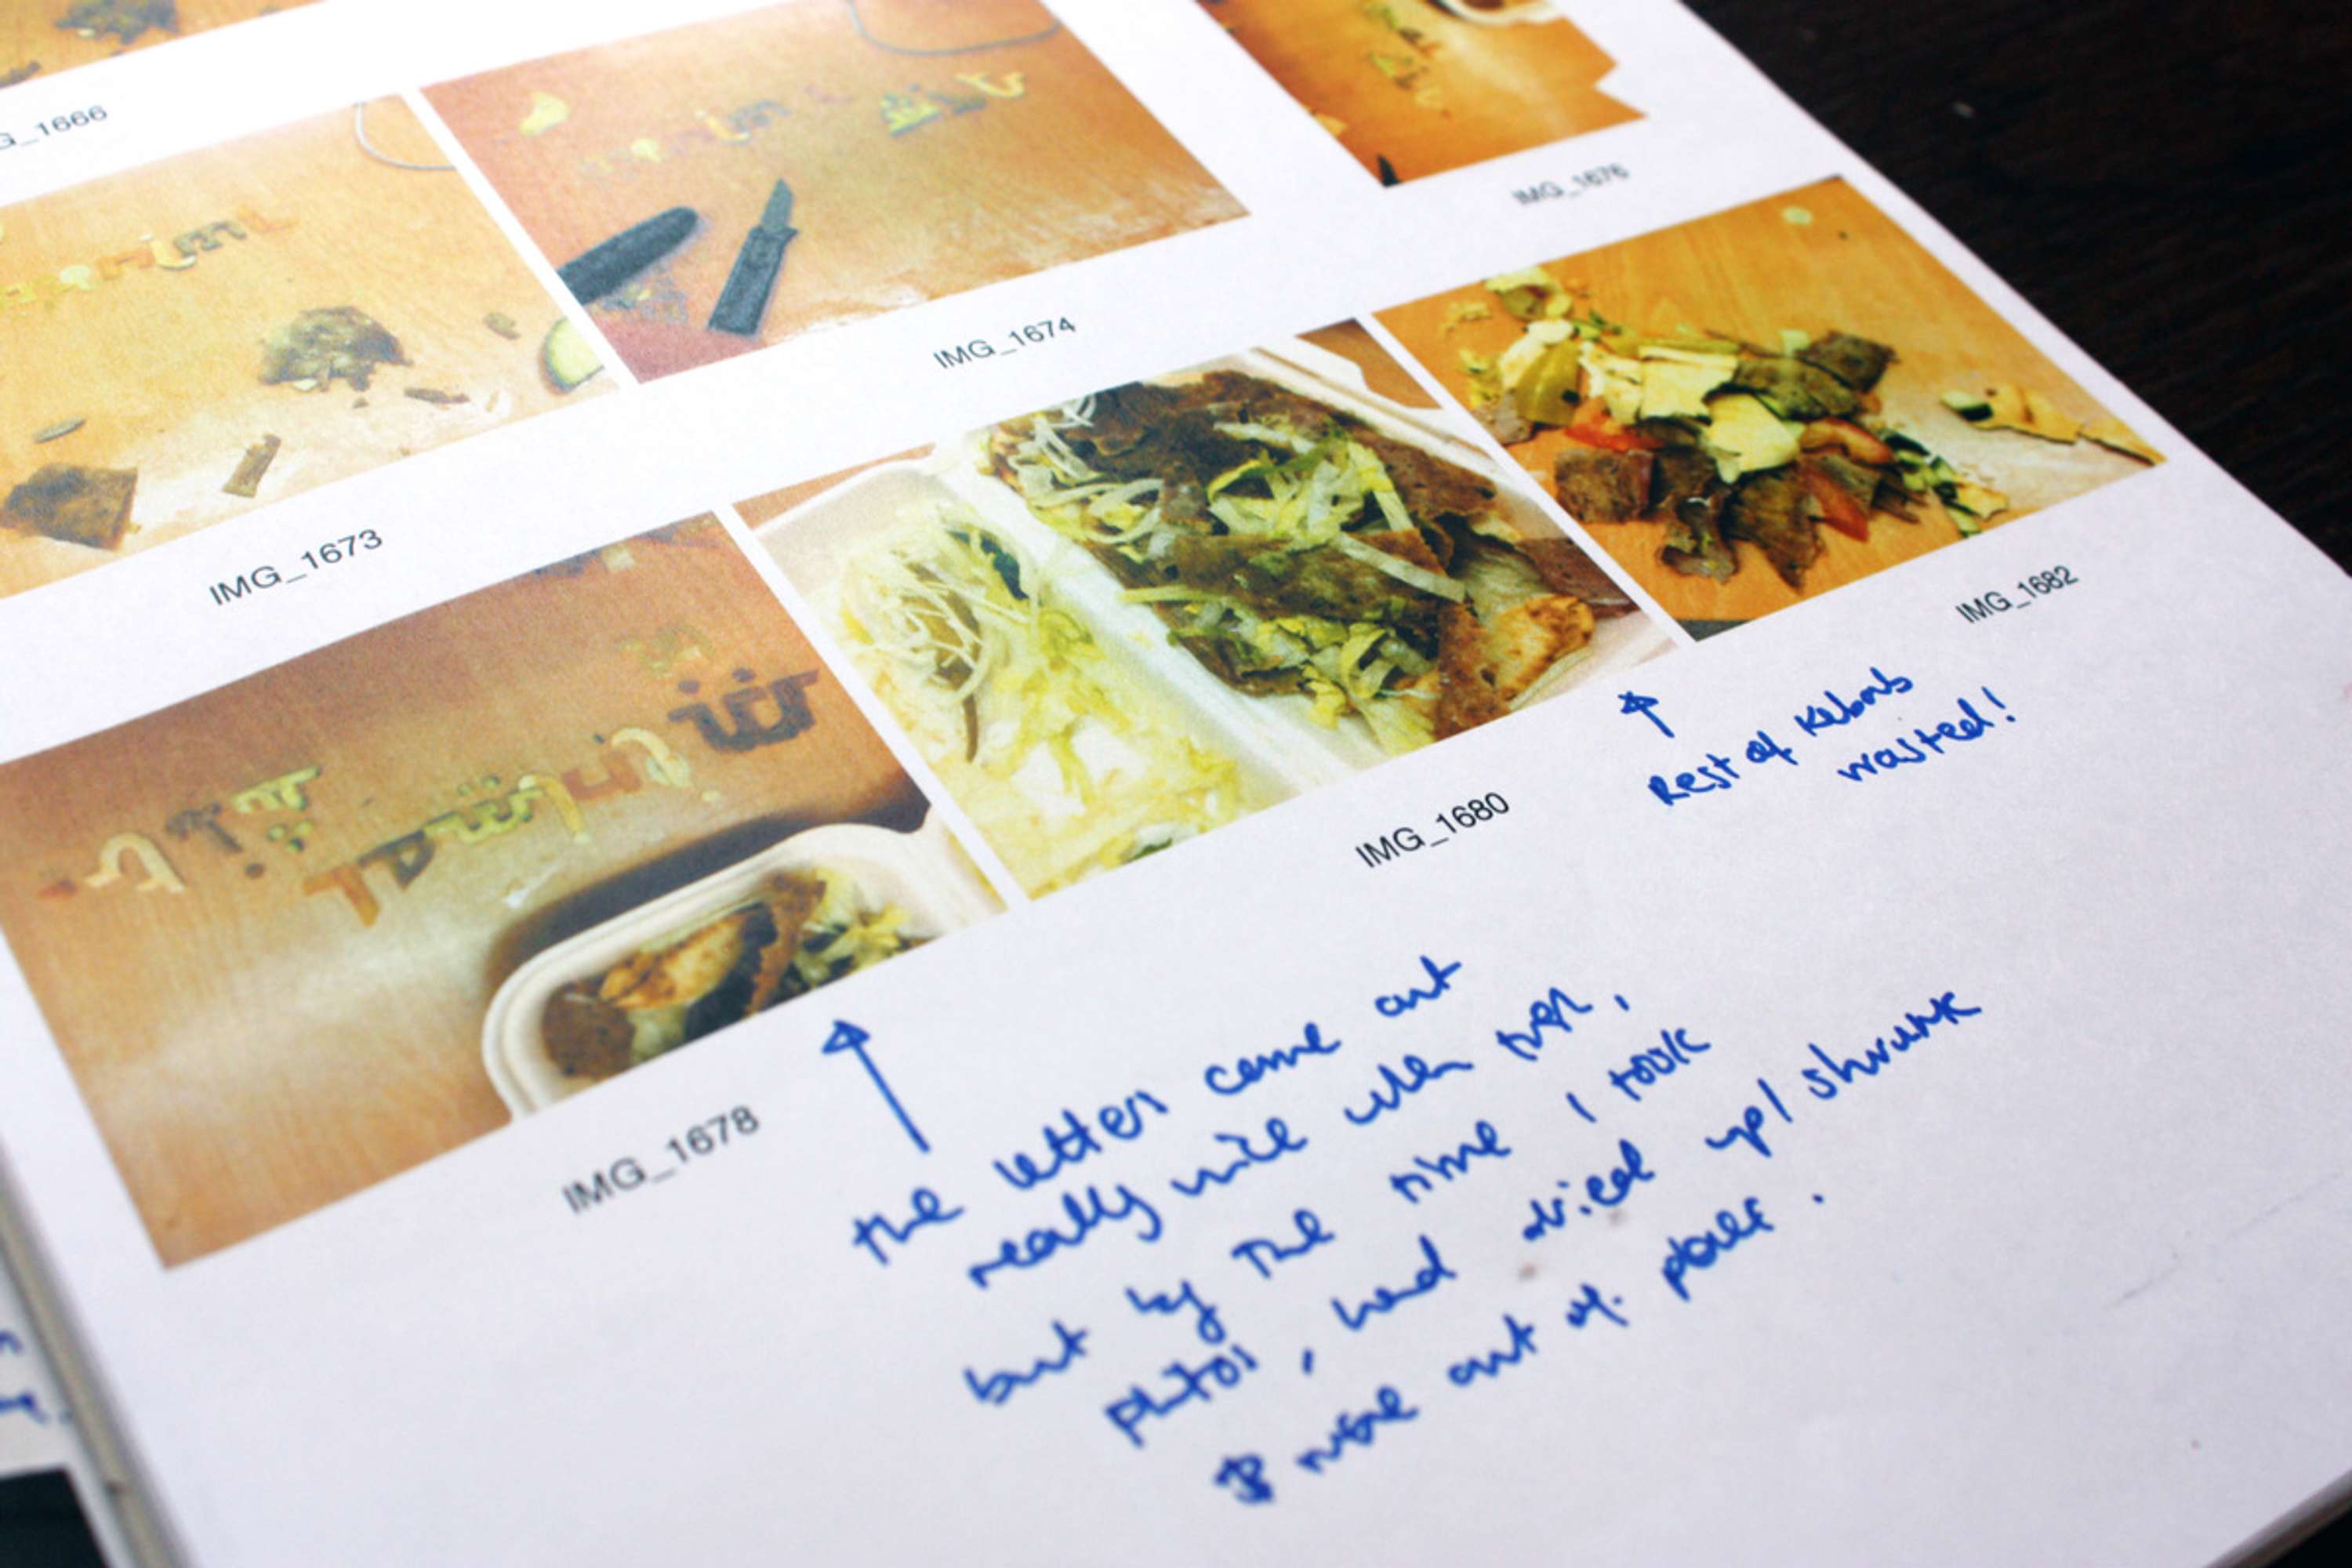 G_1666
IMG_1673
IMG_1674
IMG_1676
IMG_1678
IMG_1680
IMG_1682
Rest of Kebab
wasted!
the letters came out
really nice when
but by the time I took
photos, had dried up/shrunk
& more out of place.